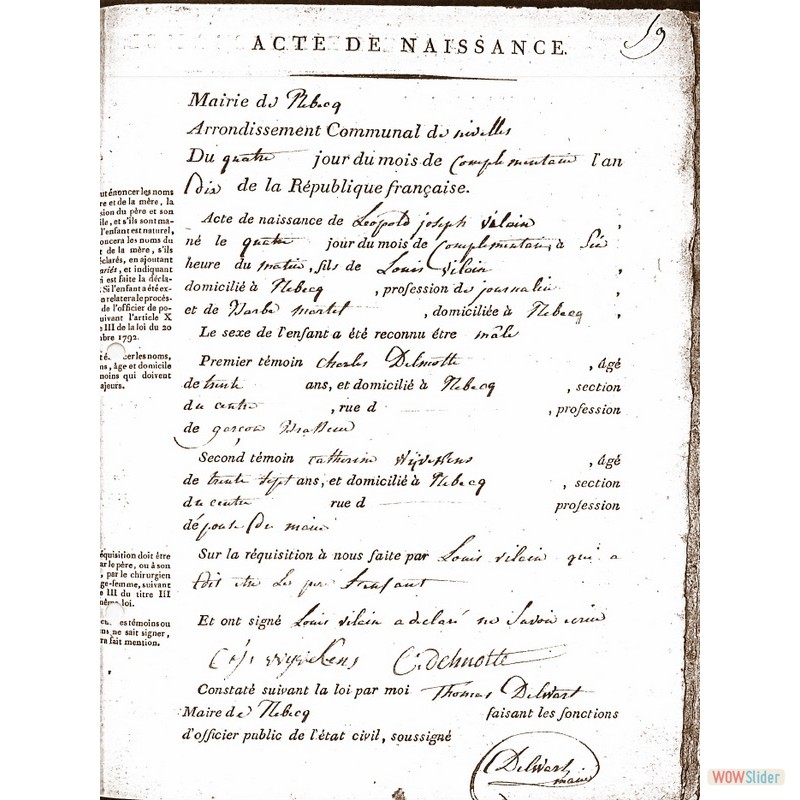 59
ACTE DE NAISSANCE.
Mairie de Rebecq
Arrondissement Communal de nivelles
Du quatre jour du mois de Complementaire l'an
dix de la République française.
Acte de naissance de Leopold joseph vilain ,
né le quatre jour du mois de Complementaire à Six
heure du matin, fils de Louis vilain ,
domicilié à Rebecq , profession de journalier ,
et de Barbe martel , domiciliée à Rebecq ,
Le sexe de l'enfant a été reconnu être mâle
Premier témoin Charles Delmotte , âgé
de trente ans, et domicilié à Rebecq , section
du centre , rue d , profession
de garcon Brasseur
Second témoin Catherine , âgé
de trente sept ans, et domicilié à Rebecq , section
du centre rue d profession
d'épouse du maire
Sur la réquisition à nous faite par Louis vilain qui a
dit etre Le per
Et ont signé Louis vilain a declaré ne Savoir ecrire
C. delmotte
Constaté suivant la loi par moi Thomas Delwart
Maire de Rebecq faisant les fonctions
d'officier public de l'état civil, soussigné
Delwart
maire
ut énoncer les noms
re et de la mère, la
sion du père et son
ile, et s'ils sont ma-
l'enfant est naturel,
oncera les noms du
t de la mère, s'ils
éclarés, en ajoutant
ariés, et indiquant
i est faite la décla-
Si l'enfant a été ex-
n relatera le procès-
de l'officier de po-
uivant l'article X
e III de la loi du 20
mbre 1792.
er les noms,
ns, âge et domicile
moins qui doivent
ajeurs.
équisition doit être
ar le père, ou à son
, par le chirurgien
ge-femme, suivant
e III du titre III
même loi.
es témoins ou
ns ne sait signer,
ra fait mention.
WOWSlider